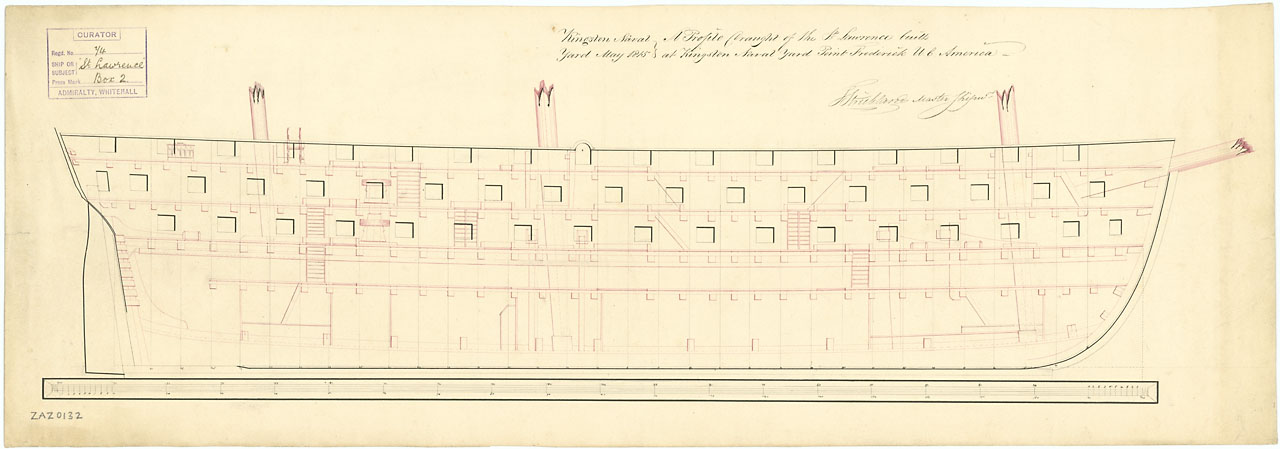 CURATOR
Regd. No. 1/4
SHIP OR St Lawrence
SUBJECT
Press Mark Box 2.
ADMIRALTY, WHITEHALL
Kingston Naval
Yard May 1815
A Profile Draught of the St. Lawrence built
at Kingston Naval Yard Point Frederick U C America
Master Shipwt
ZAZ0132